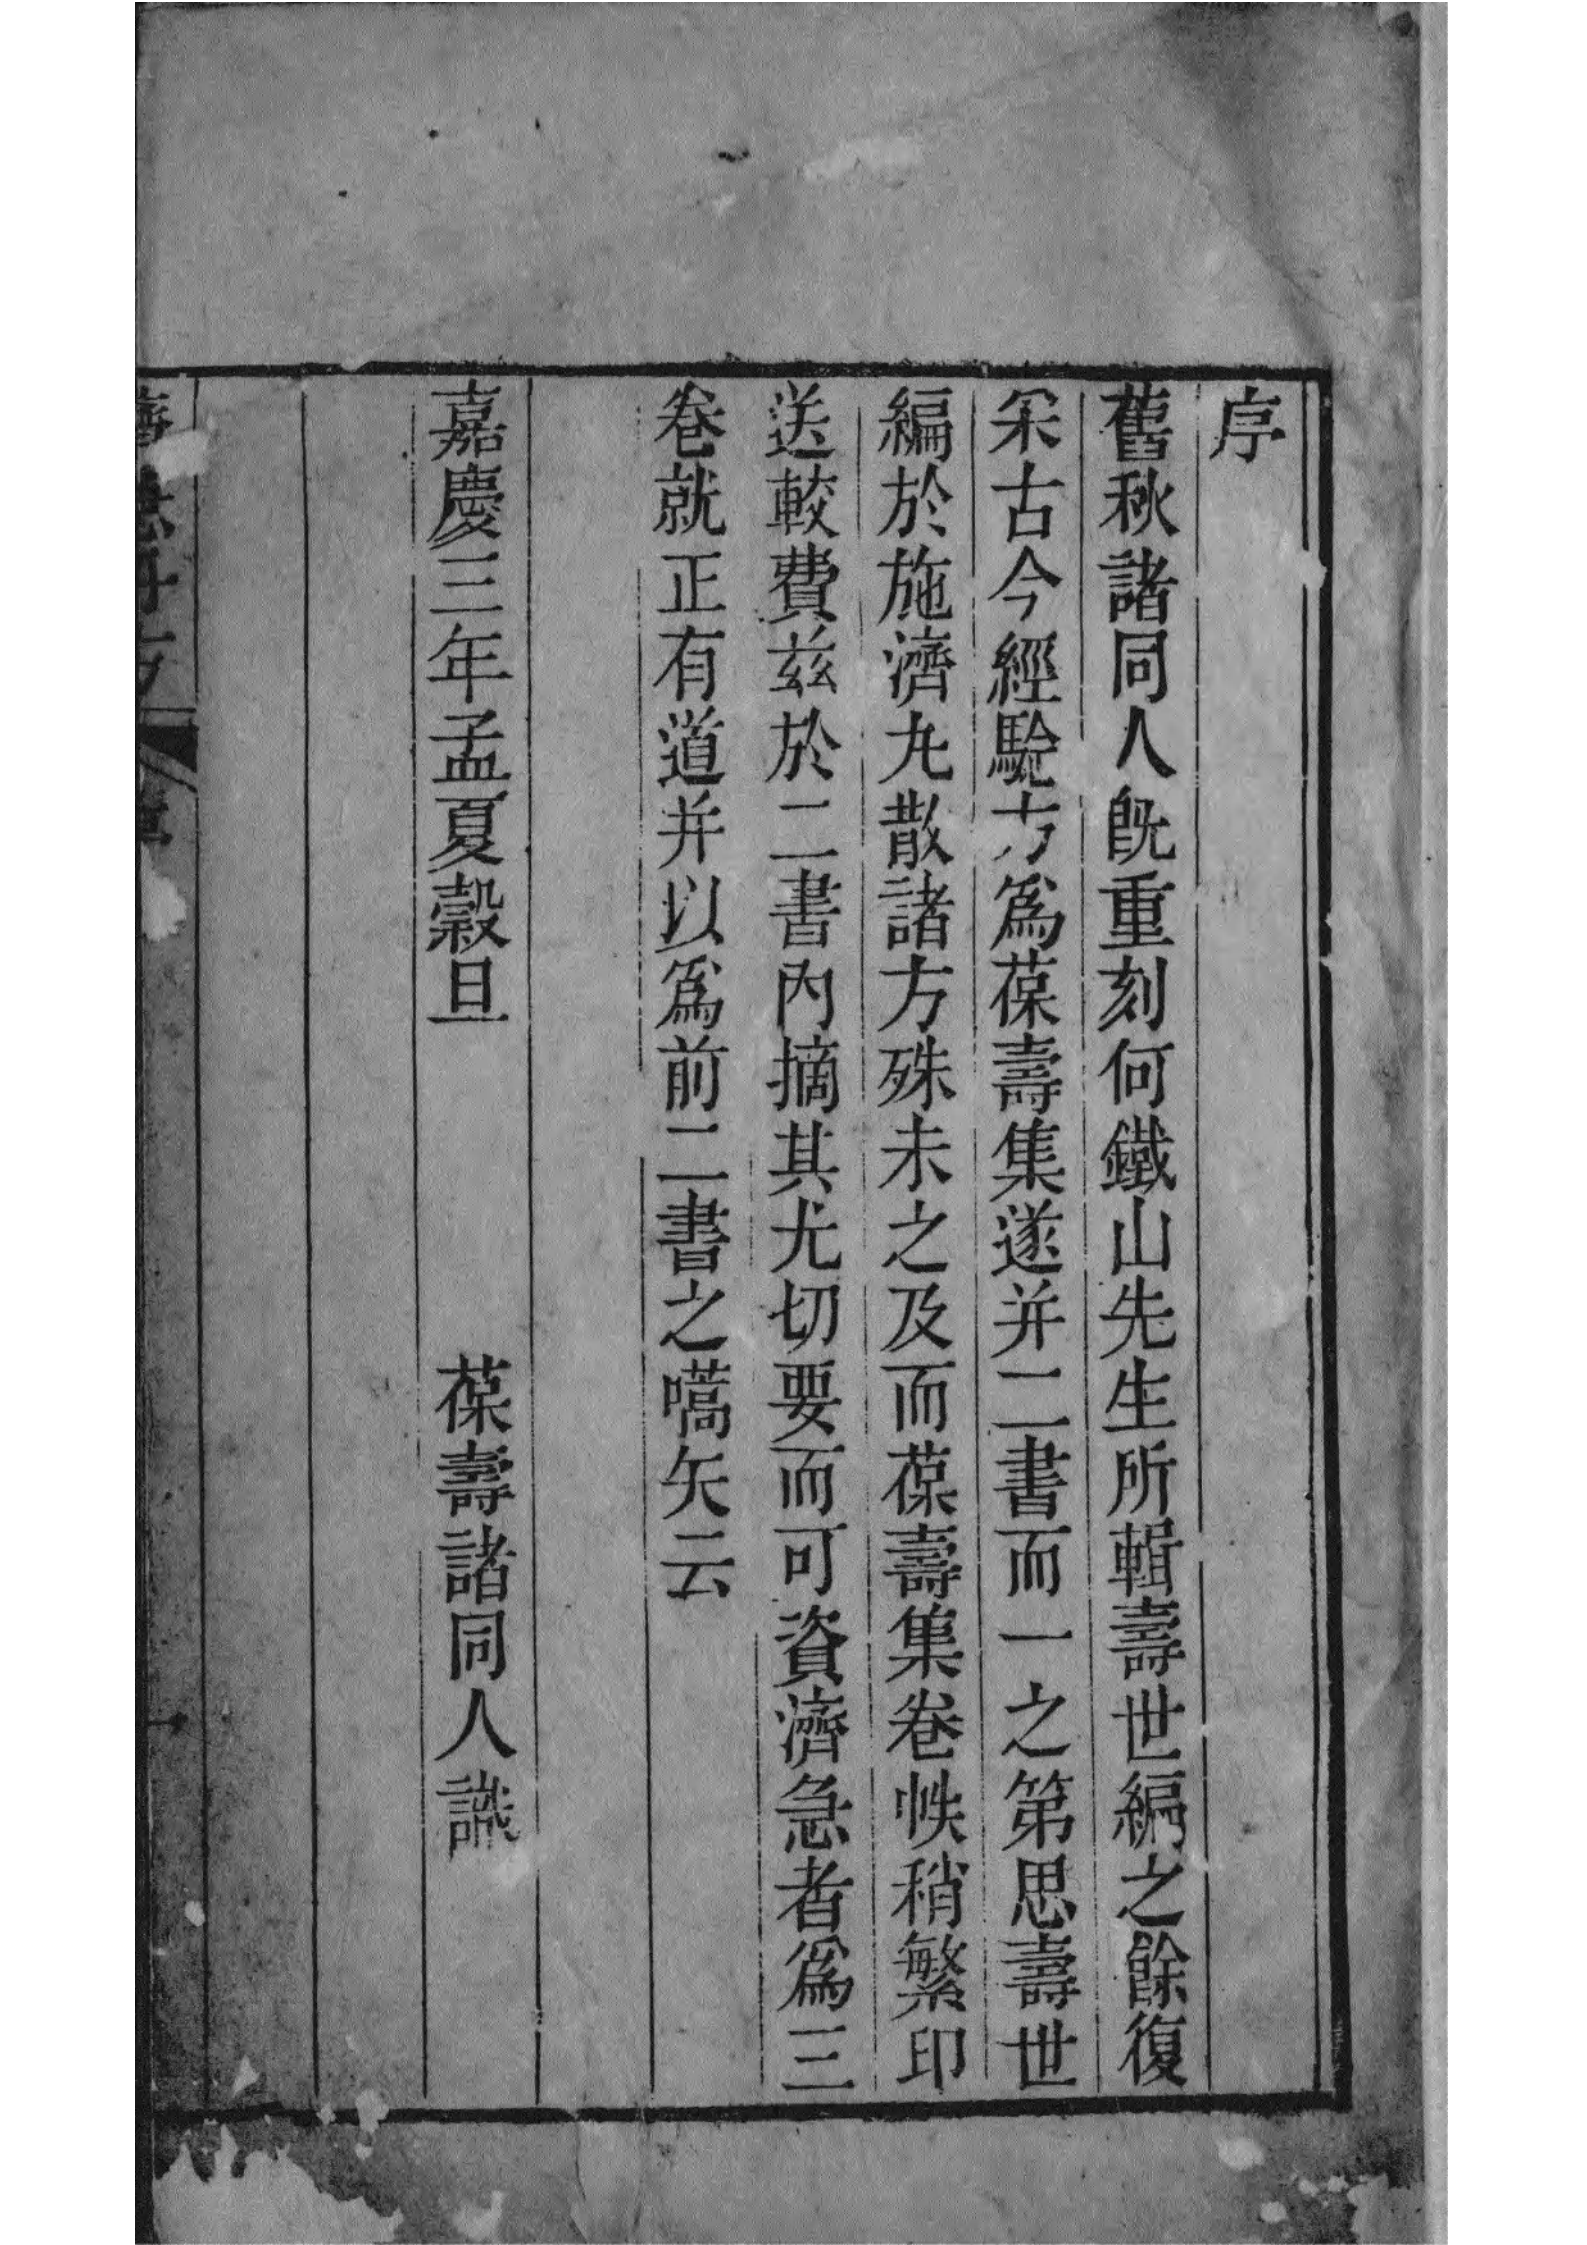 序
舊秋諸同人旣重刻何鐵山先生所輯壽世編之餘復
采古今經驗方爲葆壽集遂并二書而一之第思壽世
編於施濟丸散諸方殊未之及而葆壽集卷帙稍繁印
送較費茲於二書內摘其尤切要而可資濟急者爲三
卷就正有道并以爲前二書之嚆矢云
嘉慶三年孟夏穀旦　葆壽諸同人識